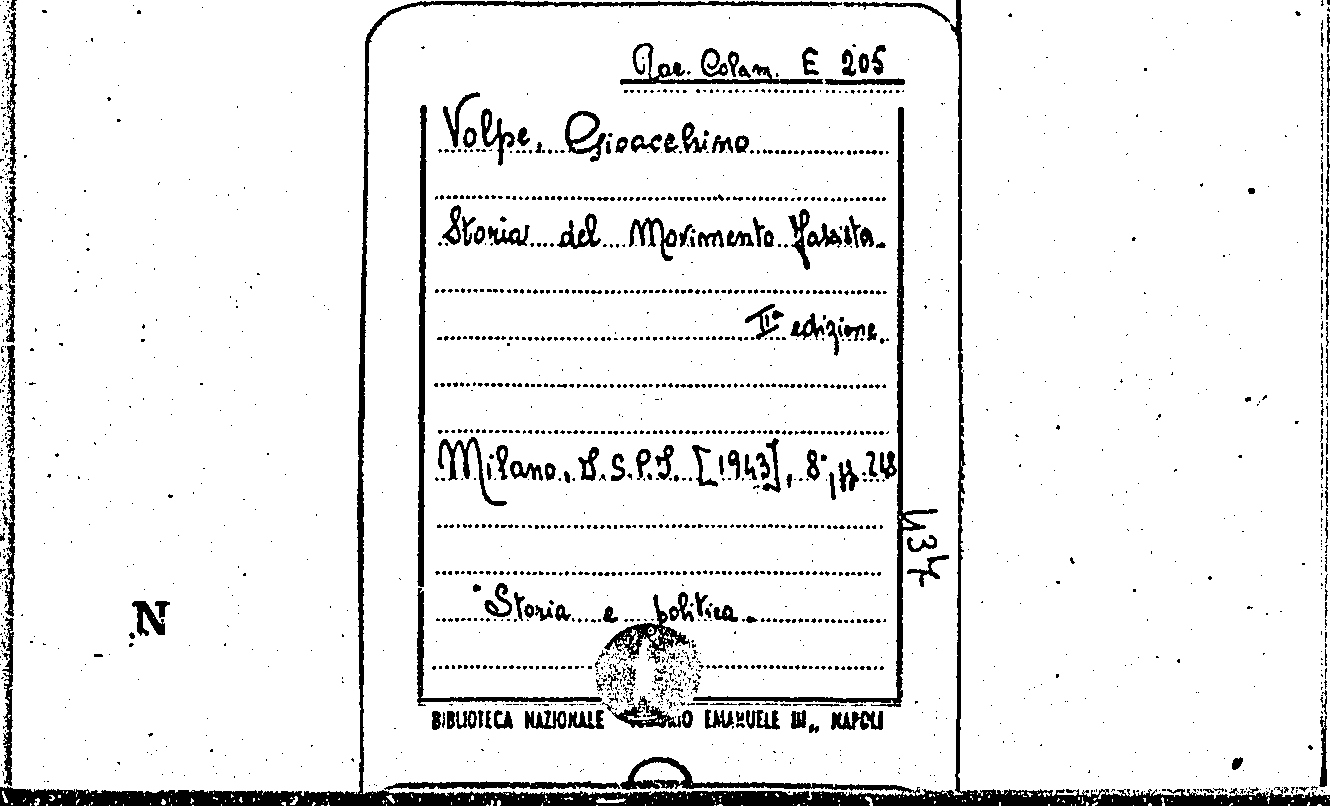 Rac. Colam. E 205
Volpe, Gioacchino
Storia del Movimento Fascista.
IIª edizione.
Milano, I.S.P.I. [1943], 8°, pp. 248
437
Storia e politica.
N
BIBLIOTECA NAZIONALE EMANUELE III„ NAPOLI